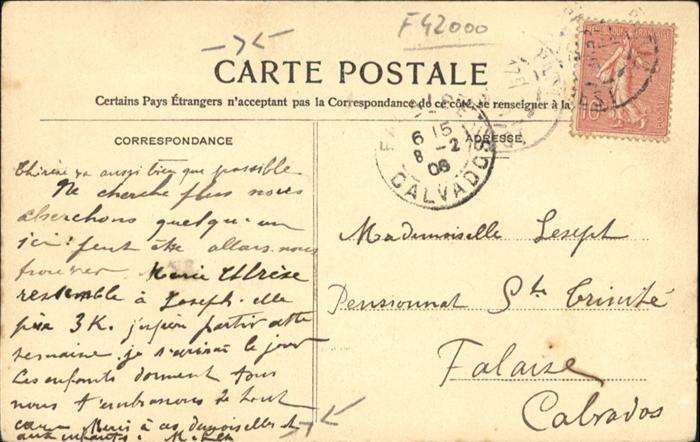 F42000
CARTE POSTALE
Certains Pays Étrangers n'acceptant pas la Correspondance de ce côté, se renseigner à la
CORRESPONDANCE
ADRESSE
6 15
8 -2
08
CALVADOS
10
Thérèse va aussi bien que possible
Ne cherche plus nous
cherchons quelqu'un
ici peut être allons nous
trouver Marie Thérèse
ressemble à Joseph. elle
pèse 3K. partir cette
semaine je le jour
Les enfants donnent tous
nous t'embrassons de tout
coeur Merci à ces demoiselles et
aux enfants
Mademoiselle Joseph
Pensionnat Ste Trinité
Falaise
Calvados